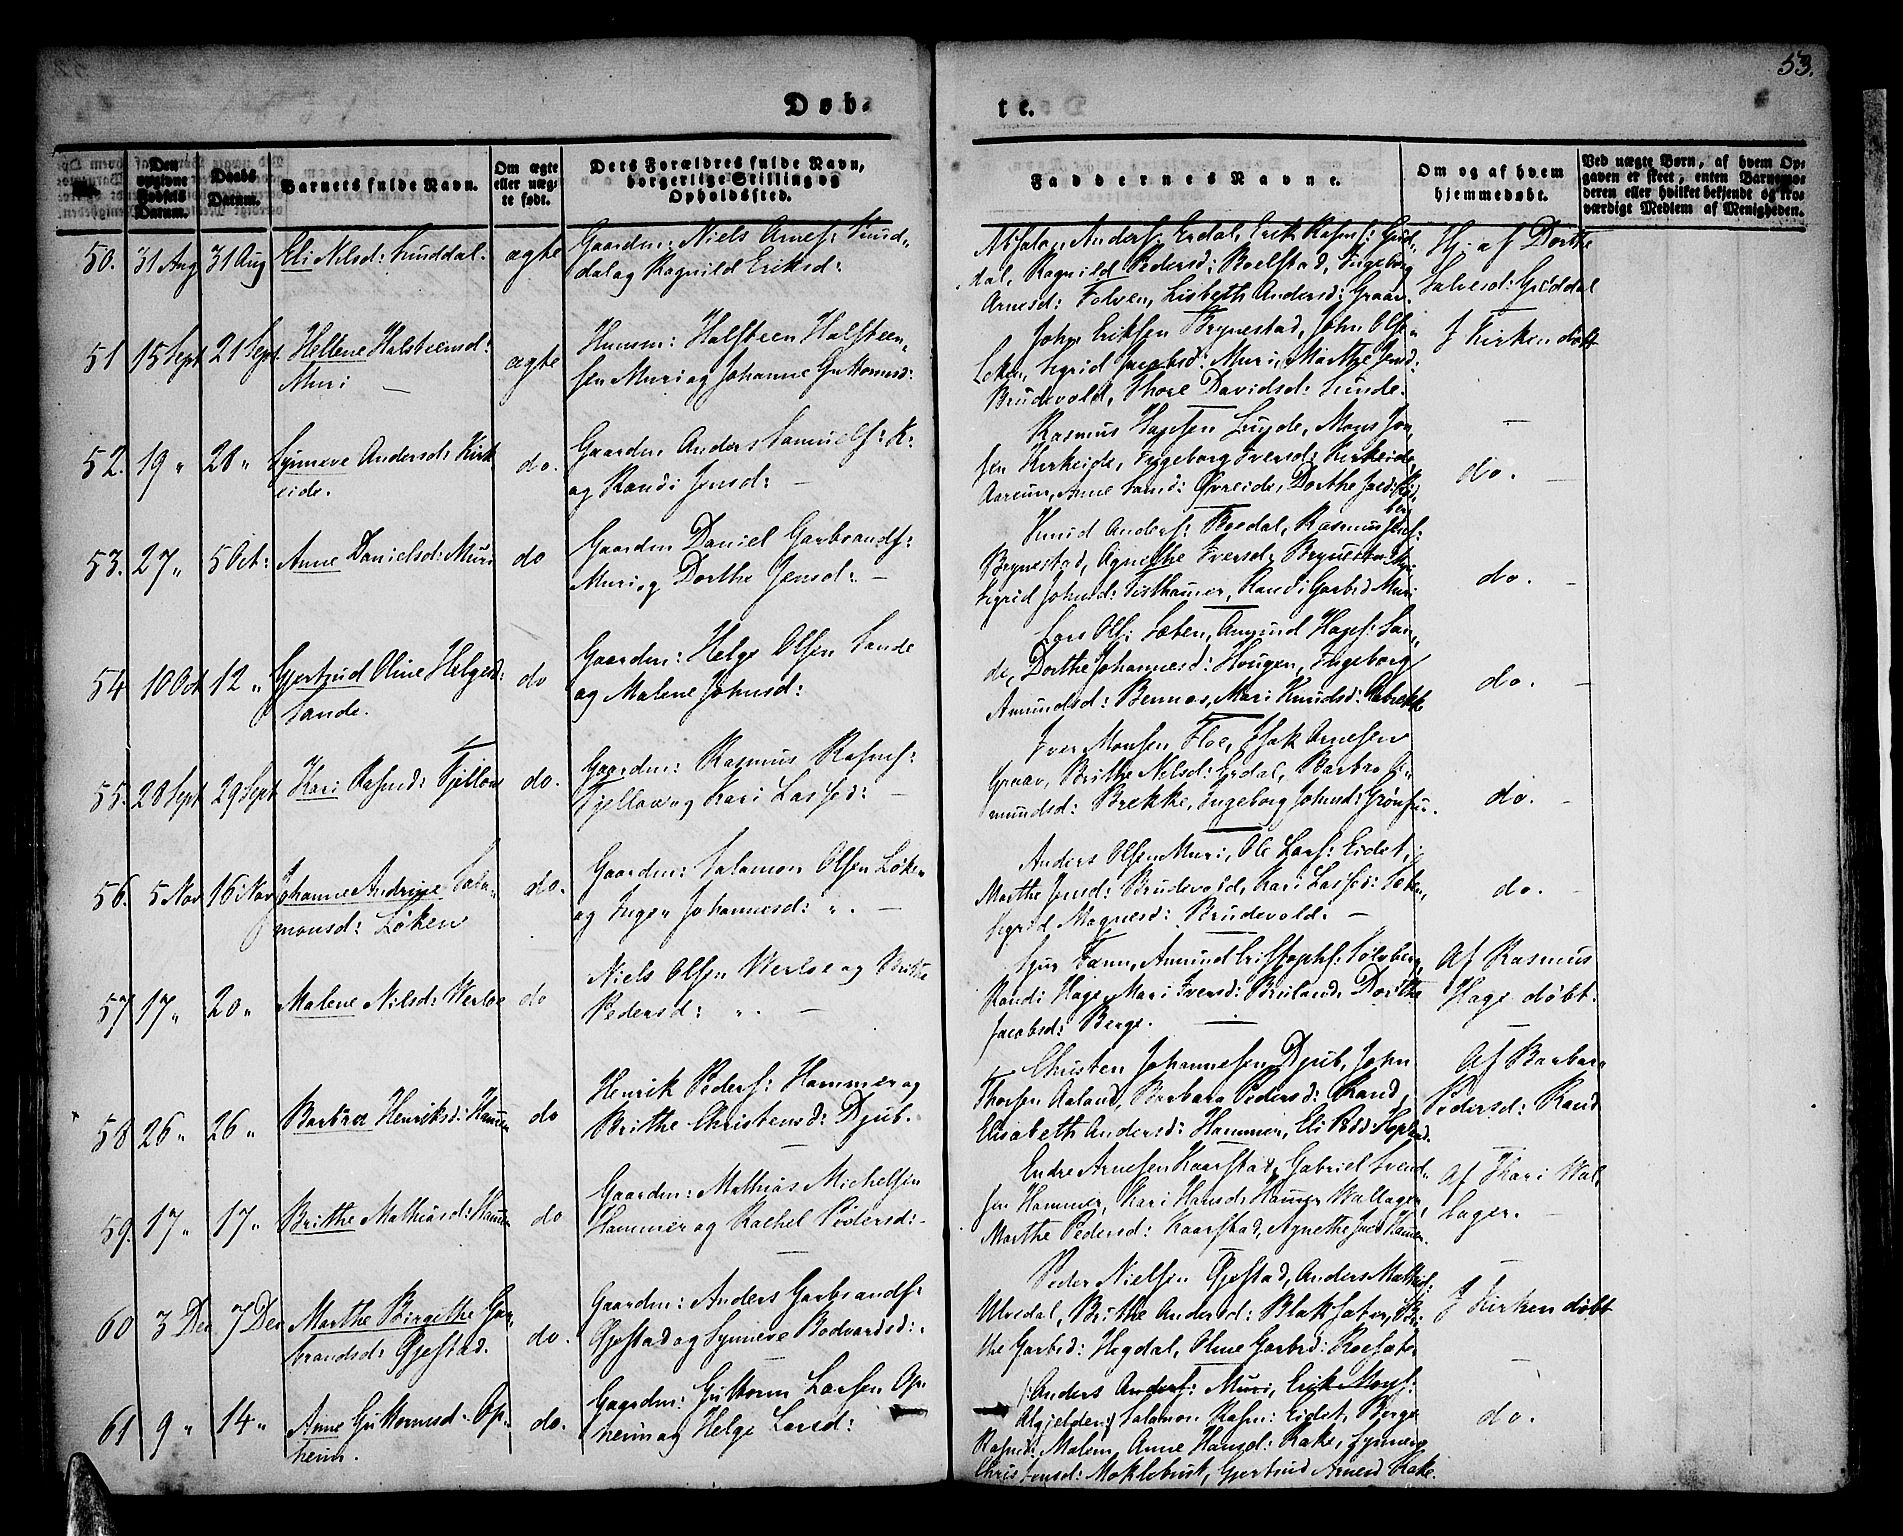 53.
Døb-
te.
Den opgivne Fødsels Datum.
Daabs Datum.
Barnets fulde Navn.
Om ægte eller uægte født.
Dets Forældres fulde Navn, borgerlige Stilling og Opholdssted.
Faddernes Navne.
Om og af hvem hjemmedøbt.
Ved uægte Børn, af hvem Opgaven er skeet, enten Barnemoderen eller hvilket bekjendt og troværdigt Medlem af Menigheden.
50. 31 Aug 31 Aug Eli Nilsd: Sunddal. ægte
Gaardm: Niels Arnes: Sund-
dal og Ragnild Eriksd:
Absalon Anders: Erdal, Erik Rasms: Gud-
dal, Ragnild Pedersd: Boelstad, Ingeborg
Arnesd: Folven, Lisbeth Andersd: Graav.
Hj: af Dorthe
Salvesd: Guddal
51 15 Sept 21 Sept Hellene Halsteensd:
Muri — ægte
Huusm: Halsteen Halsteen-
sen Muri og Johanne Guttormsd:
John Eriksen Brynestad, John Ols:
Løken, Sigrid Jacobsd: Muri, Marthe Jensd:
Brudevold, Thore Davidsd: Sunde.
I Kirken døbt
52. 19 " 28 " Synneve Andersd: Kirk-
eide. do.
Gaardm: Anders Samuels: K:
og Randi Jensd: —
Rasmus Lunde, Mons Jon-
sen Kirkeide, Ingeborg Iversd: Kirkeide,
Anne Øvreide, Dorthe
do. —
53. 27 " 5 Oct: Anne Danielsd: Muri do
Gaardm: Daniel Garbrands:
Muri og Dorthe Jensd: —
Knud Anders: Boedal, Rasmus
Brynestad, Agnethe Iversd: Brynestad
Sigrid Johnsd: Randi Garbrd Muri
do. —
54 10 Oct 12 " Gjertrud Oline Helgesd:
Sande. do
Gaardm: Helge Olsen Sande
og Malene Johnsd:
Lars Ols: Sæten, Amund San-
de, Dorthe Johannesd: Hougen, Ingeborg
Amundsd: Bennes, Mari Knudsd: Aabrekke
do. —
55. 20 Sept 29 Sept Kari Rasmd: Tjellou do.
Gaardm: Rasmus Rasms:
Tjellou og Kari Lassed: —
Iver Monsen Floe, Isak Arnesen
Graav, Brithe Nilsd: Erdal, Barbro A-
mundsd: Brekke, Ingeborg Johnsd:
do. —
56. 5 Nov 16 Nov Johanne Andrine Salo-
monsd: Løken do.
Gaardm: Salamon Olsen Løken
og Inger Johannesd: " —
Anders Olsen Muri, Ole Lars: Eidet,
Marthe Jensd: Brudevold, Kari Lassed: Sæten,
Sigrid Magnesd: Brudevold. —
do. —
57 17 " 20 " Malene Nilsd: Werlo do
Niels Olsen Werloe og Brithe
Pedersd: " —
Sjur Tonn, Amund Solvberg,
Randi Hage, Mari Iversd: Dorthe
Jacobsd: Berge. —
Af Rasmus
Hage døbt.
58 26 " 26 " Barbroe Henriksd: Hammer do
Henrik Peders: Hammer og
Brithe Christensd: Djub.
Christen Johannesen Djub, John
Thorsen Aaland, Barbara Pedersd: Rand,
Elisabeth Andersd: Hammer, Eli
Af Barbara
Pedersd: Rand
59. 17 " 17 " Brithe Mathiasd: Hammer do
Gaardm: Mathias Michelsen
Hammer og Rachel Pedersd: —
Endre Arnesen Kaarstad, Gabriel Svend-
sen Hammer, Kari Hansd: Hammer Wallager,
Marthe Pedersd: Kaarstad, Agnethe Hammer.
Af Kari Wal-
lager. —
60 3 Dec 7 Dec Marthe Birgithe Gar-
brandsd: Gjestad. do.
Gaardm: Anders Garbrands:
Gjestad og Synneve Bodvardsd:
Peder Nielsen Gjestad, Anders
Ulvedal, Brithe Andersd: Blaksæter, Bri-
the Garbrd: Hegdal, Oline Garbrd: Roesæter
I Kirken døbt
—
61 9 " 14 " Anne Guttormsd: Op-
heim. do.
Gaardm: Guttorm Larsen Op-
heim og Helge Larsd:
Anders Anders: Muri, Erik
Salamon Rasm: Eidet, Berge
Malem, Anne Hansd: Rake, Synneve
Christensd: Moklebust, Gjertrud Arnesd Rake.
do.